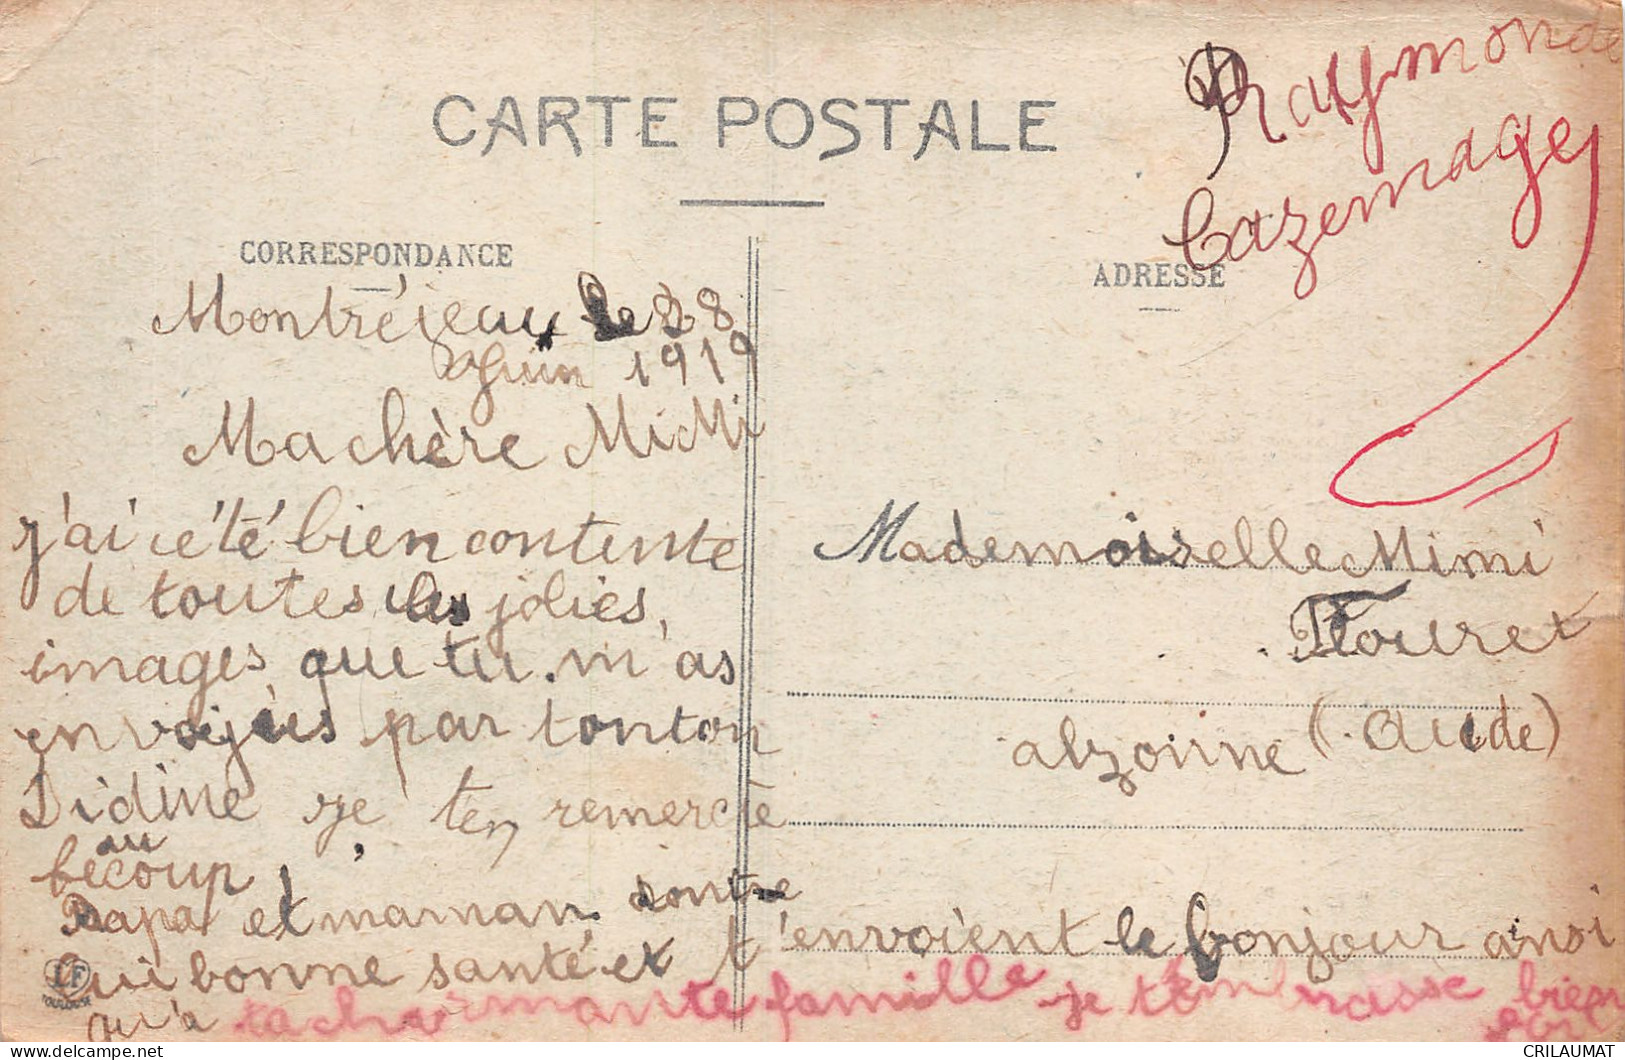 CARTE POSTALE
Raymonde
Cazemage
CORRESPONDANCE
ADRESSE
Montréjeau le 28
Juin 1919
Ma chère MiMi
j'ai été bien contente
de toutes les jolies
images que tu m'as
envoyés par tonton
Didine je t'en remercie
au
becoup,
Papa et maman sont
bonne santé et t'envoient le bonjour ainsi
qu'a ta charmante famille je t'embrasse bien
fort
Mademoiselle Mimi
Flouret
alzonne (Aude)
LF
TOULOUSE
CRILAUMAT